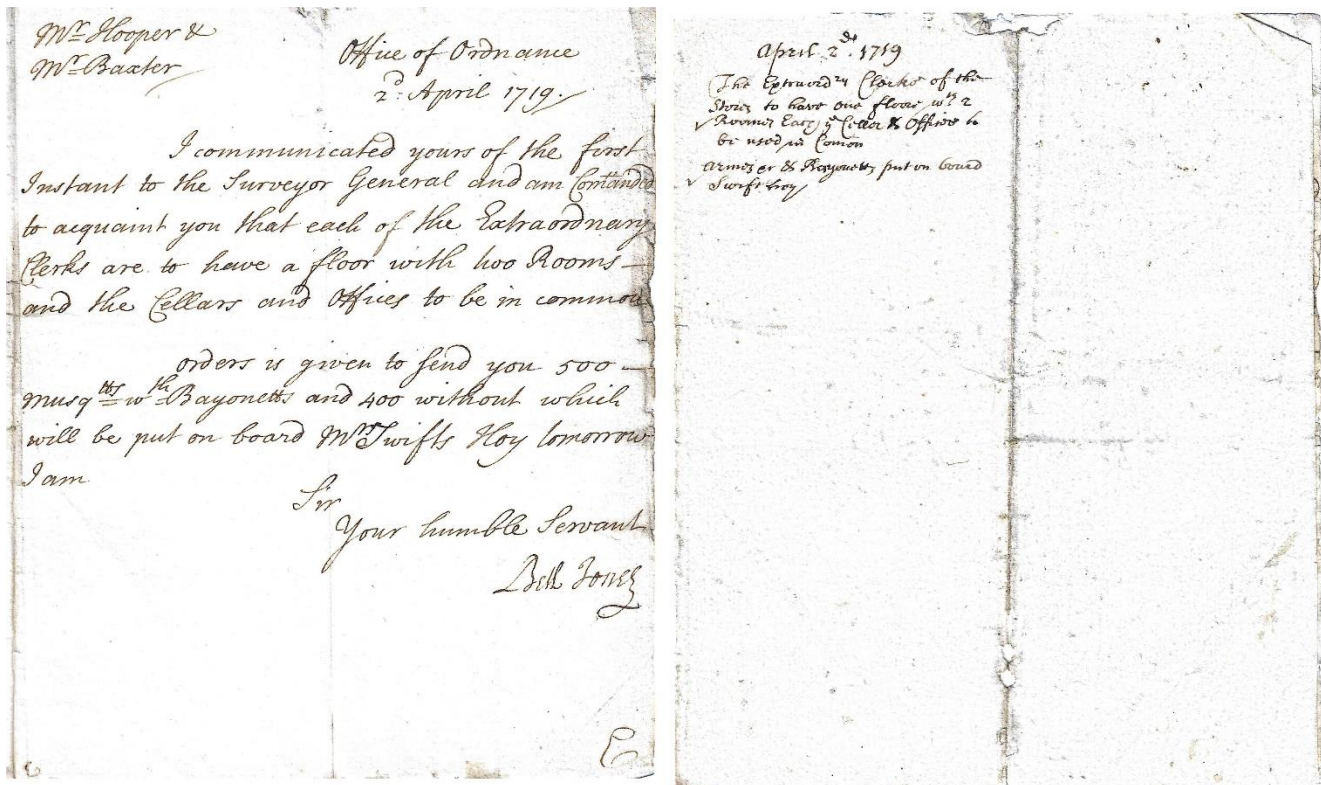 Mr Hooper &
Mr Baxter
Office of Ordnance
2d: April 1719.
I communicated yours of the first
Instant to the Surveyor General and am Comanded
to acquaint you that each of the Extraordnary
Clerks are to have a floor with two Rooms
and the Cellars and Offices to be in common
orders is given to send you 500
Musqtts wth Bayonetts and 400 without which
will be put on board Mr Swifts Hoy tomorrow
I am
Sir
Your humble Servant
Jones
April 2d. 1719
The Extraordry Clerks of the
Stores to have one floore wth 2
Roomes Each ye Cellar & Offices to
be used in Comon
& Bayonetts put on board
Swift hoy